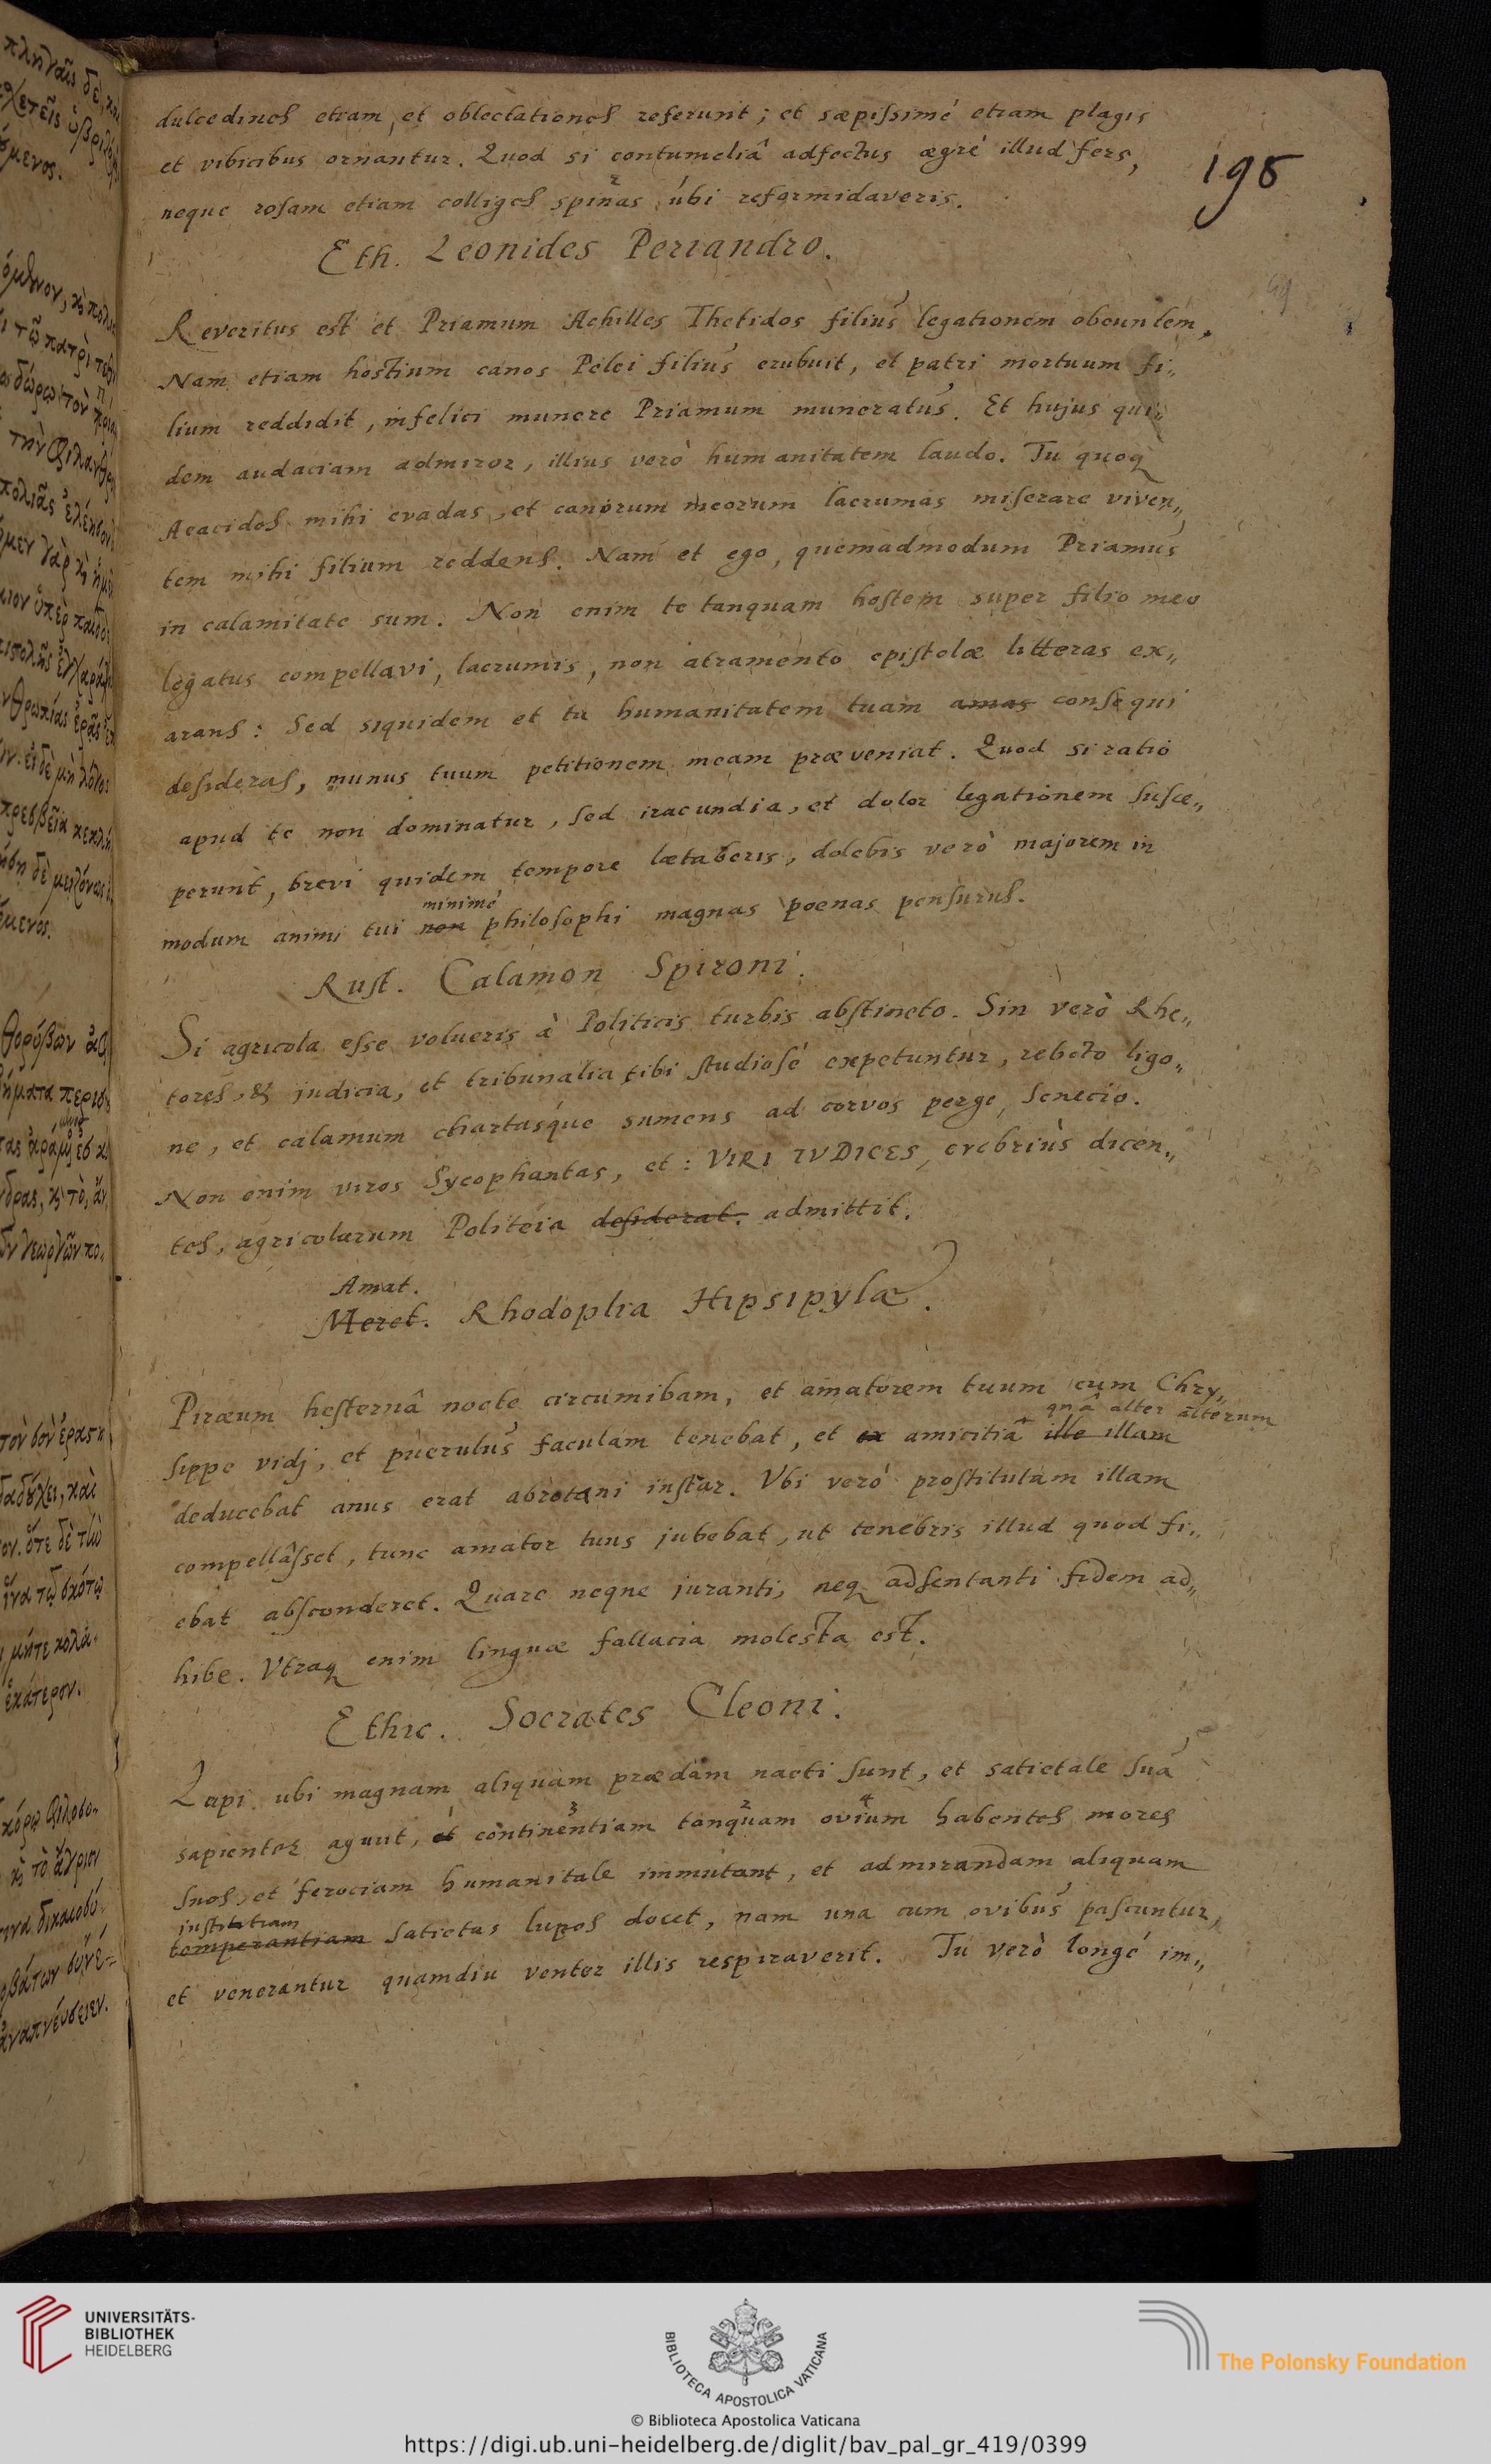 dulcedines etiam, et oblectationes referunt; et sæpissimé etiam plagis
et vibicibus ornantur. Quod si contumeliâ adfectus ægré illud fers,
198
neque rosam etiam colliges spinas ubi reformidaveris.
Eth. Leonides Periandro.
Reveritus est et Priamum Achilles Thetidos filius legationem obeuntem,
Nam etiam hostium canos Pelei filius erubuit, et patri mortuum fi„
lium reddidit, infelici munere Priamum muneratus. Et hujus qui„
dem audaciam admiror, illius verò humanitatem laudo. Tu quoq
Aeacides mihi evadas, et canorum meorum lacrumas miserare viven„
tem mihi filium reddens. Nam et ego, quemadmodum Priamus
in calamitate sum. Non enim te tanquam hostem super filio meo
legatus compellavi, lacrumis, non atramento epistolæ litteras ex„
arans: Sed siquidem et tu humanitatem tuam amas consequi
desideras, munus tuum petitionem meam præveniat. Quod si ratio
apud te non dominatur, sed iracundia, et dolor legationem susce„
perunt, brevi quidem tempore lætaberis, dolebis verò majorem in
minimé
modum animi tui non philosophi magnas poenas pensurus.
Rust. Calamon Spironi.
Si agricola esse volueris à Politicis turbis abstineto. Sin verò Rhe„
tores, & judicia, et tribunalia tibi studiosé expetuntur, rebeto ligo„
ne, et calamum chartasque sumens ad corvos perge, Senecio.
Non enim viros Sycophantas, et: VIRI IVDICES, crebriùs dicen„
tes, agricolarum Politeia desiderat. admittit.
Amat.
Meret. Rhodoplia Hipsipylæ.
Piræum hesternâ nocte circumibam, et amatorem tuum cum Chry„
quâ alter alterum
sippe vidj, et puerulus faculam tenebat, et ex amicitiâ ille illam
deducebat anus erat abrotani instar. Vbi veró prostitutam illam
compellâsset, tunc amator tuus jubebat, ut tenebris illud quod fi„
ebat absconderet. Quare neque juranti, neq adsentanti fidem ad„
hibe. Vtraq enim linguæ fallacia molesta est.
Ethic. Socrates Cleoni.
Lupi ubi magnam aliquam prædam nacti sunt, et satietate sua
3 2 4
sapienter agunt, et continentiam tanquam ovium habentes mores
suos, et ferociam humanitate immutant, et admirandam aliquam
justitiam
temperantiam satietas lupos docet, nam una cum ovibus pascuntur,
et venerantur quamdiu venter illis respiraverit. Tu verò longé im„
UNIVERSITÄTS-
BIBLIOTHEK
HEIDELBERG
BIBLIOTECA APOSTOLICA VATICANA
The Polonsky Foundation
© Biblioteca Apostolica Vaticana
https://digi.ub.uni-heidelberg.de/diglit/bav_pal_gr_419/0399